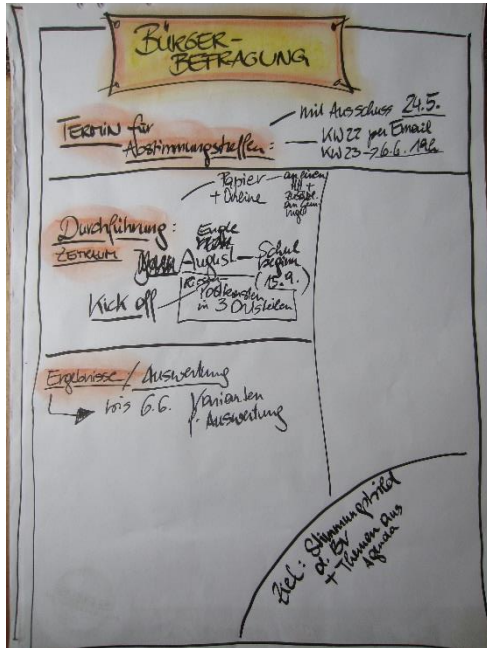 BÜRGER-
BEFRAGUNG
TERMIN für
Abstimmungstreffen:
mit Ausschuss 24.5.
KW22 per Email
KW23 → 6.6. 19h
Durchführung:
ZEITRAUM
Papier
+ Online
an jeden
HH +
Ende
August – Schul
beginn
(15.9.)
Kick off
Postkasten
in 3 Ortsteilen
Ergebnisse / Auswertung
bis 6.6. Varianten
f. Auswertung
Ziel: Stimmungsbild
d. BV
+ Themen aus
Agenda